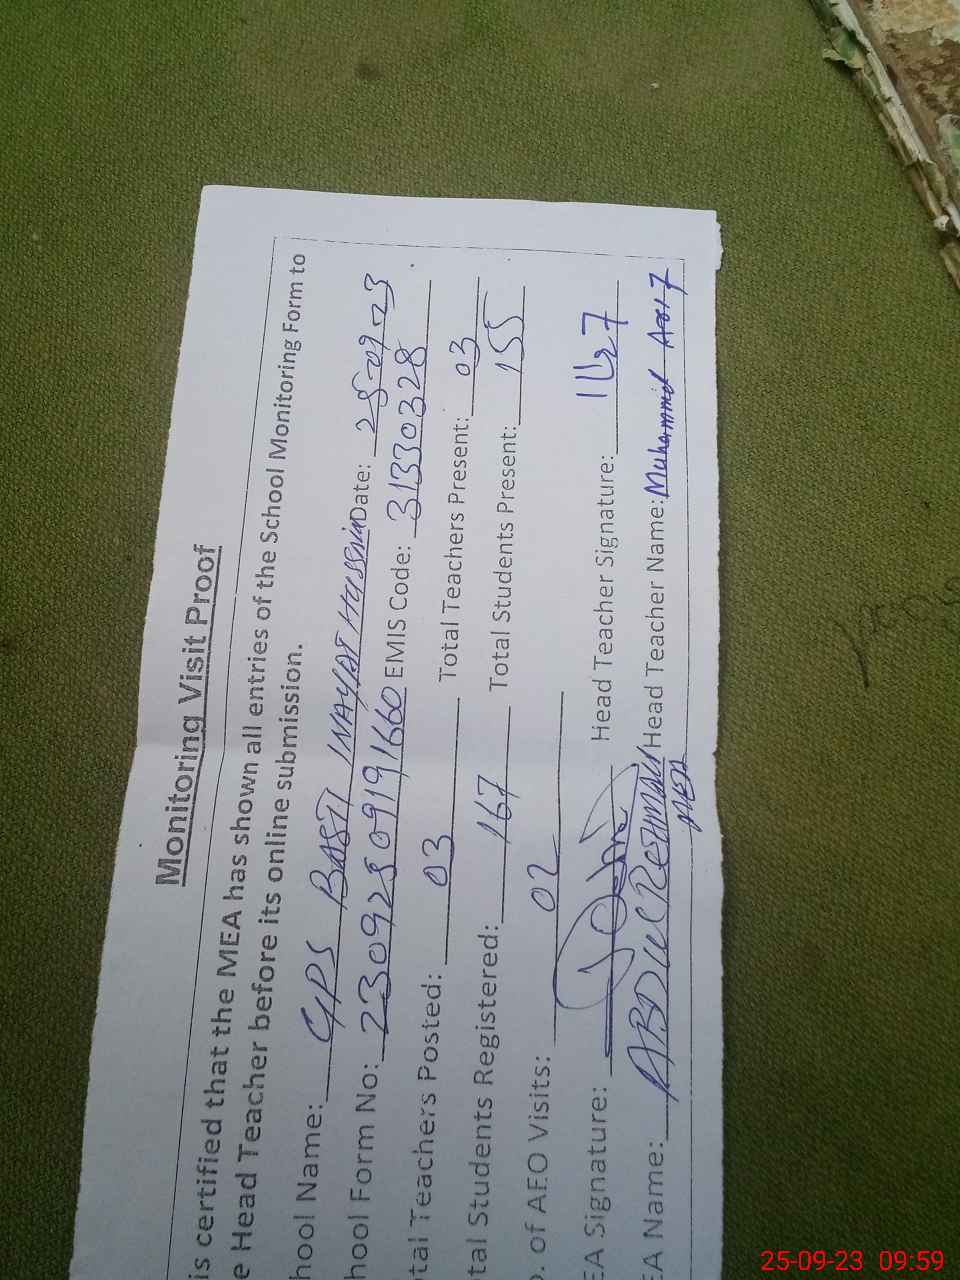 Monitoring Visit Proof
is certified that the MEA has shown all entries of the School Monitoring Form to
e Head Teacher before its online submission.
hool Name: GPS BASTI INAYAT Hussain Date: 25-09-23
hool Form No: 230925091919660 EMIS Code: 31330328
tal Teachers Posted: 03 Total Teachers Present: 03
tal Students Registered: 167 Total Students Present: 155
. of AEO Visits: 02
EA Signature: Head Teacher Signature:
EA Name: ABDUL REHMAN Head Teacher Name: Muhammad
MEA
25-09-23 09:59